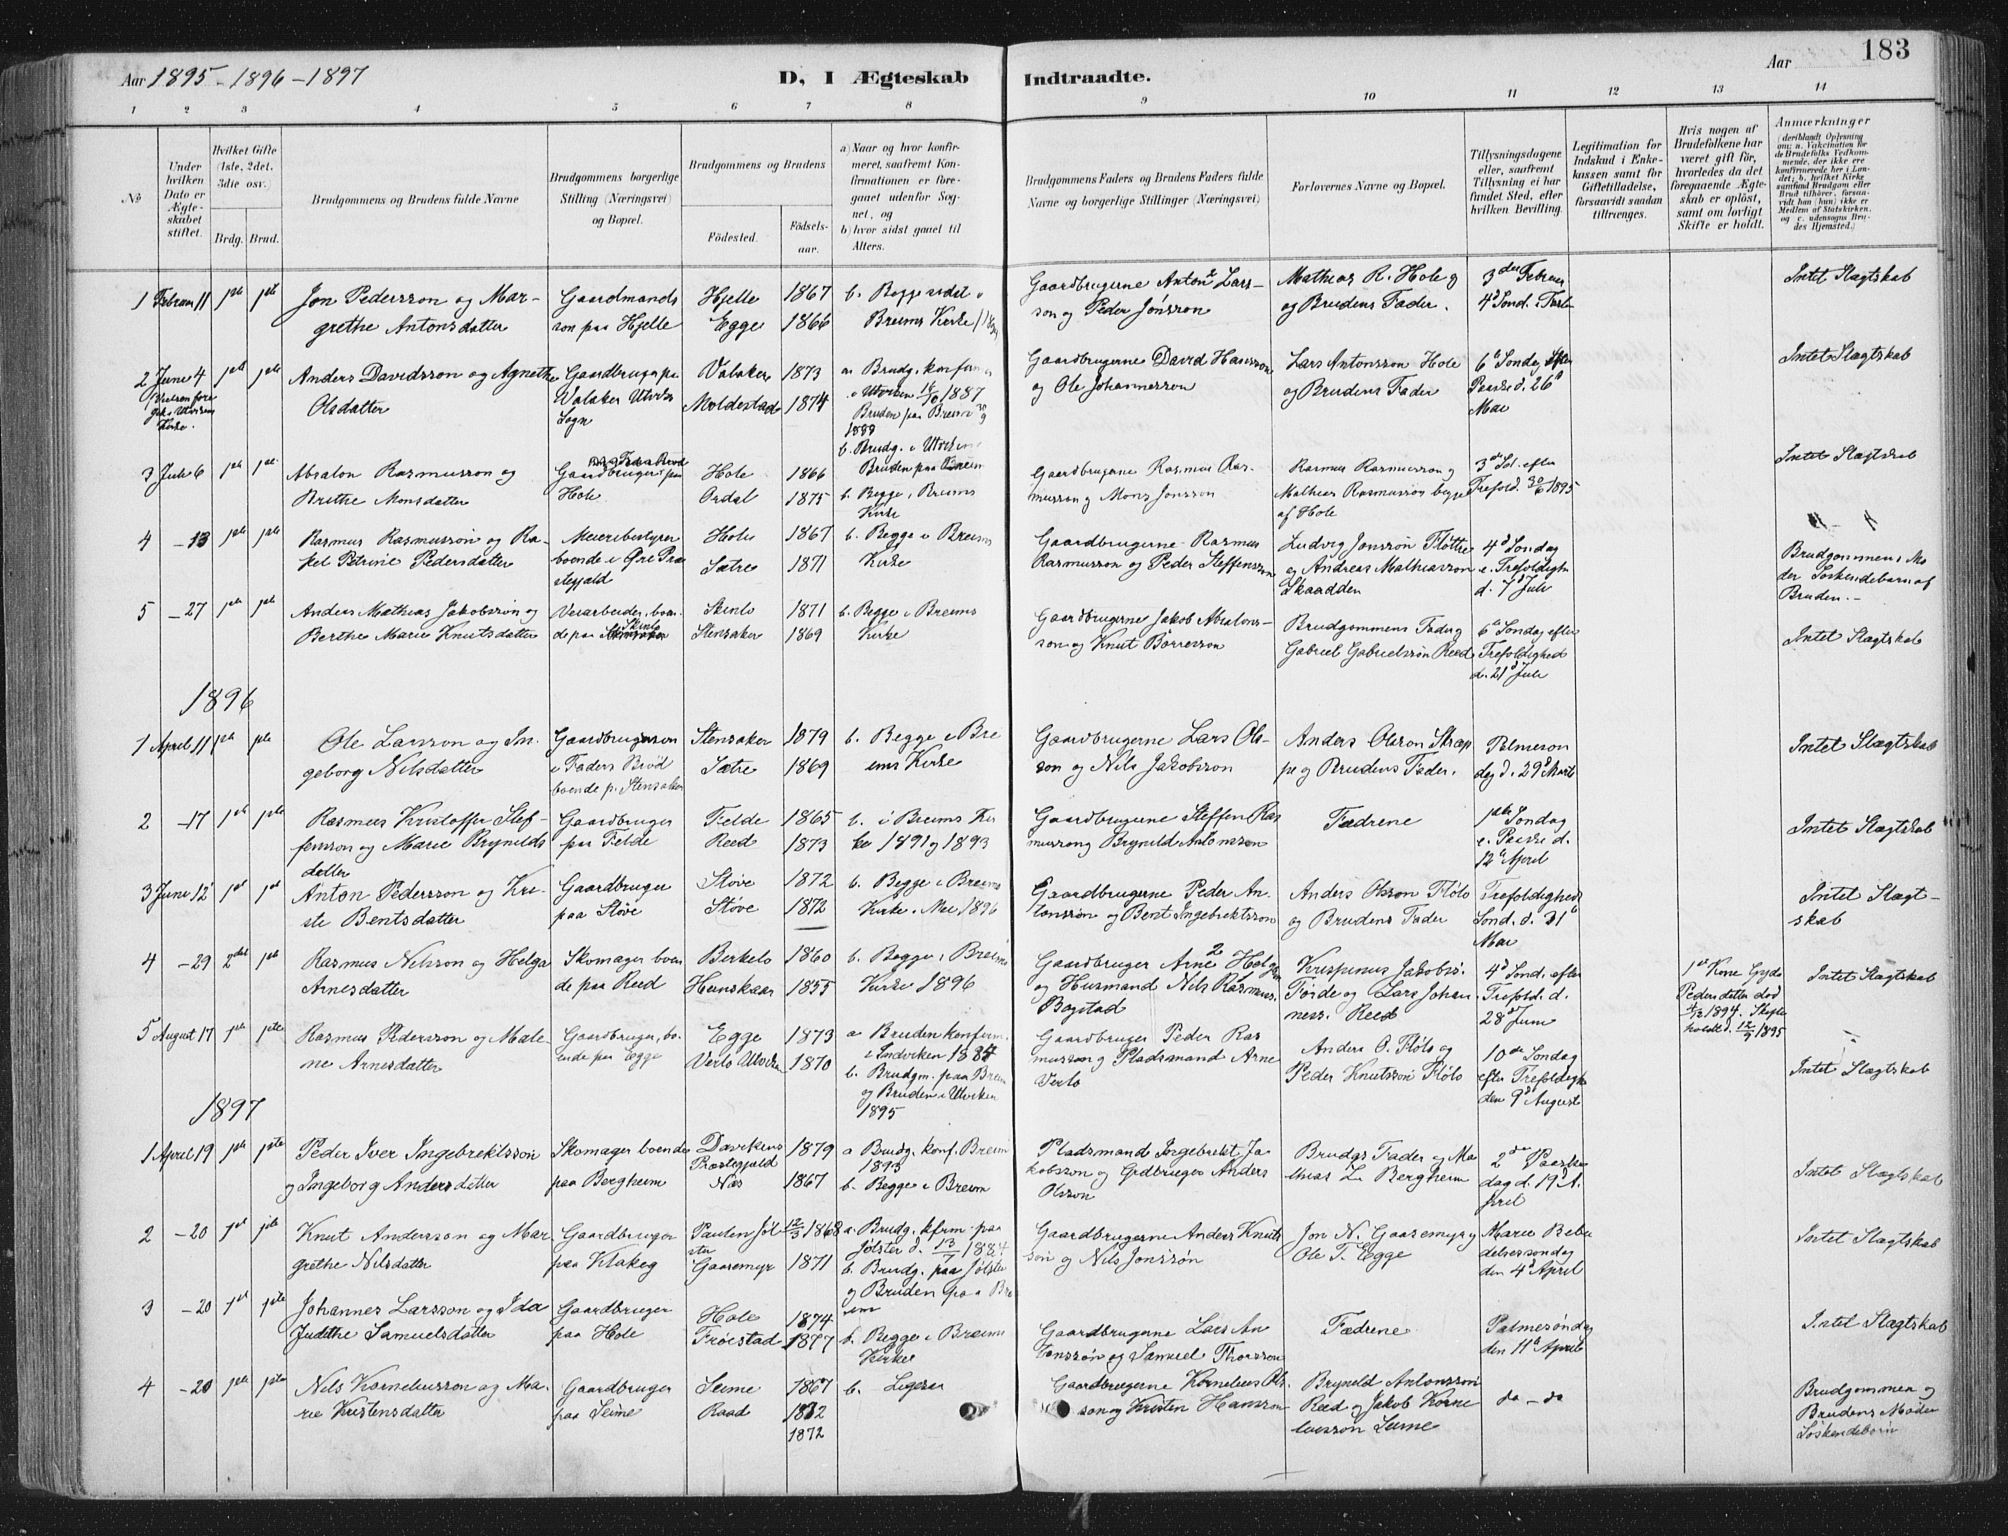 183
Aar 1895 - 1896 - 1897
D, I Ægteskab Indtraadte.
Aar
1 2 3 4 5 6 7 8 9 10 11 12 13 14
No
Under hvilken Dato er Ægteskabet stiftet.
Hvilket Gifte (1ste, 2det, 3die osv.)
Brdg. Brud.
Brudgommens og Brudens fulde Navne
Brudgommens borgerlige Stilling (Næringsvei) og Bopæl.
Brudgommens og Brudens
Fødested.
Fødselsaar.
a) Naar og hvor konfirmeret, saafremt Konfirmationen er foregaaet udenfor Sognet, og
b) hvor sidst gaaet til Alters.
Brudgommens Faders og Brudens Faders fulde Navne og borgerlige Stillinger (Næringsvei)
Forlovernes Navne og Bopæl.
Tillysningsdagene eller, saafremt Tillysning ei har fundet Sted, efter hvilken Bevilling.
Legitimation for Indskud i Enkekassen samt for Giftetilladelse, forsaavidt saadan tiltrænges.
Hvis nogen af Brudefolkene har været gift før, hvorledes da det foregaaende Ægteskab er opløst, samt om lovligt Skifte er holdt.
Anmærkninger
1 Februar 11 1ste 1ste Jon Pedersson og Margrethe Antonsdatter
Gaardmandsson paa Hjelle
Hjelle 1867
Egge 1866
b. Begge sidst i Breims Kirke
Gaardbrugerne Anton Larsson og Peder Jonsson
Mathias R. Hole og Brudens Fader.
3die Februar 4d Sønd. i Faste
Intet Slægtskab
2 June 4 1ste 1ste Anders Davidsson og Agnethe Olsdatter
Gaardbruger paa Valaker Utvikens Sogn
Valaker 1873
Moldestad 1874
a. Brudg. konfirm. i Utviken 1887 Bruden paa Breim 1888
b. Brudg. i Utviken Bruden paa Breim
Gaardbrugerne David Hansson og Ole Johannesson
Lars Antonsson Hole og Brudens Fader
6te Søndag efter Paaske d. 26d Mai
Intet Slægtskab
3 Juli 6 1ste 1ste Absalon Rasmusson og Brithe Monsdatter
Gaardbruger paa Hole
Hole 1866
Ordal 1875
b. Begge i Breims Kirke
Gaardbrugerne Rasmus Rasmusson og Mons Jonsson
Rasmus Rasmusson og Mathias Rasmusson begge af Hole
3die Sd. efter Trefold. 30/6 1895
Intet Slægtskab
4 -13 1ste 1ste Rasmus Rasmusson og Rakel Petrine Pedersdatter
Meieribestyrer boende i
Hole 1867
Sætre 1871
b. Begge i Breims Kirke
Gaardbrugerne Rasmus Rasmusson og Peder Steffensson
Ludvig Jonsson Fløtte og Andreas Mathiasson Skaadden
4d Søndag e. Trefoldigh. d. 7d Juli
Brudgommens Moder Søskendebarn af Bruden.-
5 -27 1ste 1ste Anders Mathias Jakobsson og Berthe Marie Knutsdatter
boende paa Skinlo
Skinlo 1871
Stensaker 1869
b. Begge i Breims Kirke
Gaardbrugerne Jakob Absalonsson og Knut Børresson
Brudgommens Fader og Gabriel Gabrielsson Reed
6te Søndag efter Trefoldighed d. 21d Juli
Intet Slægtskab
1896
1 April 11 1ste 1ste Ole Larsson og Ingeborg Nilsdatter
Gaardbrugerson i Faders Brød boende p. Stensaker
Stensaker 1879
Sætre 1869
b. Begge i Breims Kirke
Gaardbrugerne Lars Olsson og Nils Jakobsson
Anders Olsson Skrappe og Brudens Fader.
Palmesøndag d. 29d Marts
Intet Slægtskab
2 -17 1ste 1ste Rasmus Kristoffer Steffensson og Marie Brynildsdatter
Gaardbruger paa Felde
Felde 1865
Reed 1873
b. i Breims Kirke 1891 og 1893
Gaardbrugerne Steffen Rasmusson og Brynild Antonsson
Fædrene
1ste Søndag e. Paaske d. 12te April
Intet Slægtskab
3 June 12 1ste 1ste Anton Pedersson og Kriste Bentsdatter
Gaardbruger paa Støve
Støve 1872
Støve 1872
b. Begge i Breims Kirke. Mai 1896
Gaardbrugerne Peder Antonsson og Bent Ingebrektsson
Anders Olsson Fløto og Brudens Fader
Trefoldigheds Sønd. d. 31te Mai
Intet Slægtskab
4 -29 2det 1ste Rasmus Nilsson og Helga Arnesdatter
Skomager boende paa Reed
Birkelo 1860
Henskaar 1855
b. Begge i Breims Kirke 1896
Gaardbruger Arne Helgesen og Husmand Nils Rasmuss. Bogstad
Krispinus Jakobss. Førde og Lars Johanness. Reed
4d Sønd. efter Trefold. d. 28d June
1ste Kone Gyda Pedersdatter død 1894. Skifte holdt d. 1895
Intet Slægtskab
5 August 17 1ste 1ste Rasmus Pedersson og Malene Arnesdatter
Gaardbruger, boende paa Egge
Egge 1873
Verlo Utviken 1870
a Bruden konfirm. i Indviken 1884
b. Brudgm. paa Breim og Bruden i Utviken 1895
Gaardbruger Peder Rasmusson og Pladsmand Arne Verlo
Anders O. Fløto og Peder Knutsson Fløto
10de Søndag efter Trefoldigh. den 9d August
Intet Slægtskab
1897
1 April 19 1ste 1ste Peder Iver Ingebrektsson og Ingeborg Andersdatter
Skomager boende paa Bergheim
Davikens Præstegjæld 1879
Næs 1867
a Brudg. konf. Breim 1893
b. Begge i Breim
Pladsmand Ingebrekt Jakobsson og Grdbruger Anders Olsson
Brudgs Fader og Mathias L. Bergheim
2den Paaskedag d. 19d April
Intet Slægtskab
2 -20 1ste 1ste Knut Andersson og Margrethe Nilsdatter
Gaardbruger paa Klakeg
Paulen Jølster 12/3 1868
Gaasemyr 1871
a. Brudg. kfirm. paa Jølster d. 13/7 1884
b. Brudg. paa Jølster og Bruden paa Breim
Gaardbrugerne Anders Knutsson og Nils Jonsson
Jon N. Gaasemyr og Ole T. Egge
Marie Bebudelsessøndag den 4d April
Intet Slægtskab
3 -20 1ste 1ste Johannes Larsson og Ida Judithe Samuelsdatter
Gaardbruger paa Hole
Hole 1874
Frøistad 1877
b. Begge i Breims Kirke
Gaardbrugerne Lars Antonsson og Samuel Thorsson
Fædrene
Palmesøndag den 11te April
Intet Slægtskab
4 -20 1ste 1ste Nils Korneliusson og Marie Kristensdatter
Gaardbruger paa Seime
Seime 1867
Raad 1872
1872
b. Ligesaa
Gaardbrugerne Kornelius Olsson og Kristen Hansson
Brynild Antonsson Reed og Jakob Korneliusson Seime
do - do
Brudgommen og Brudens Moder Søskendebørn